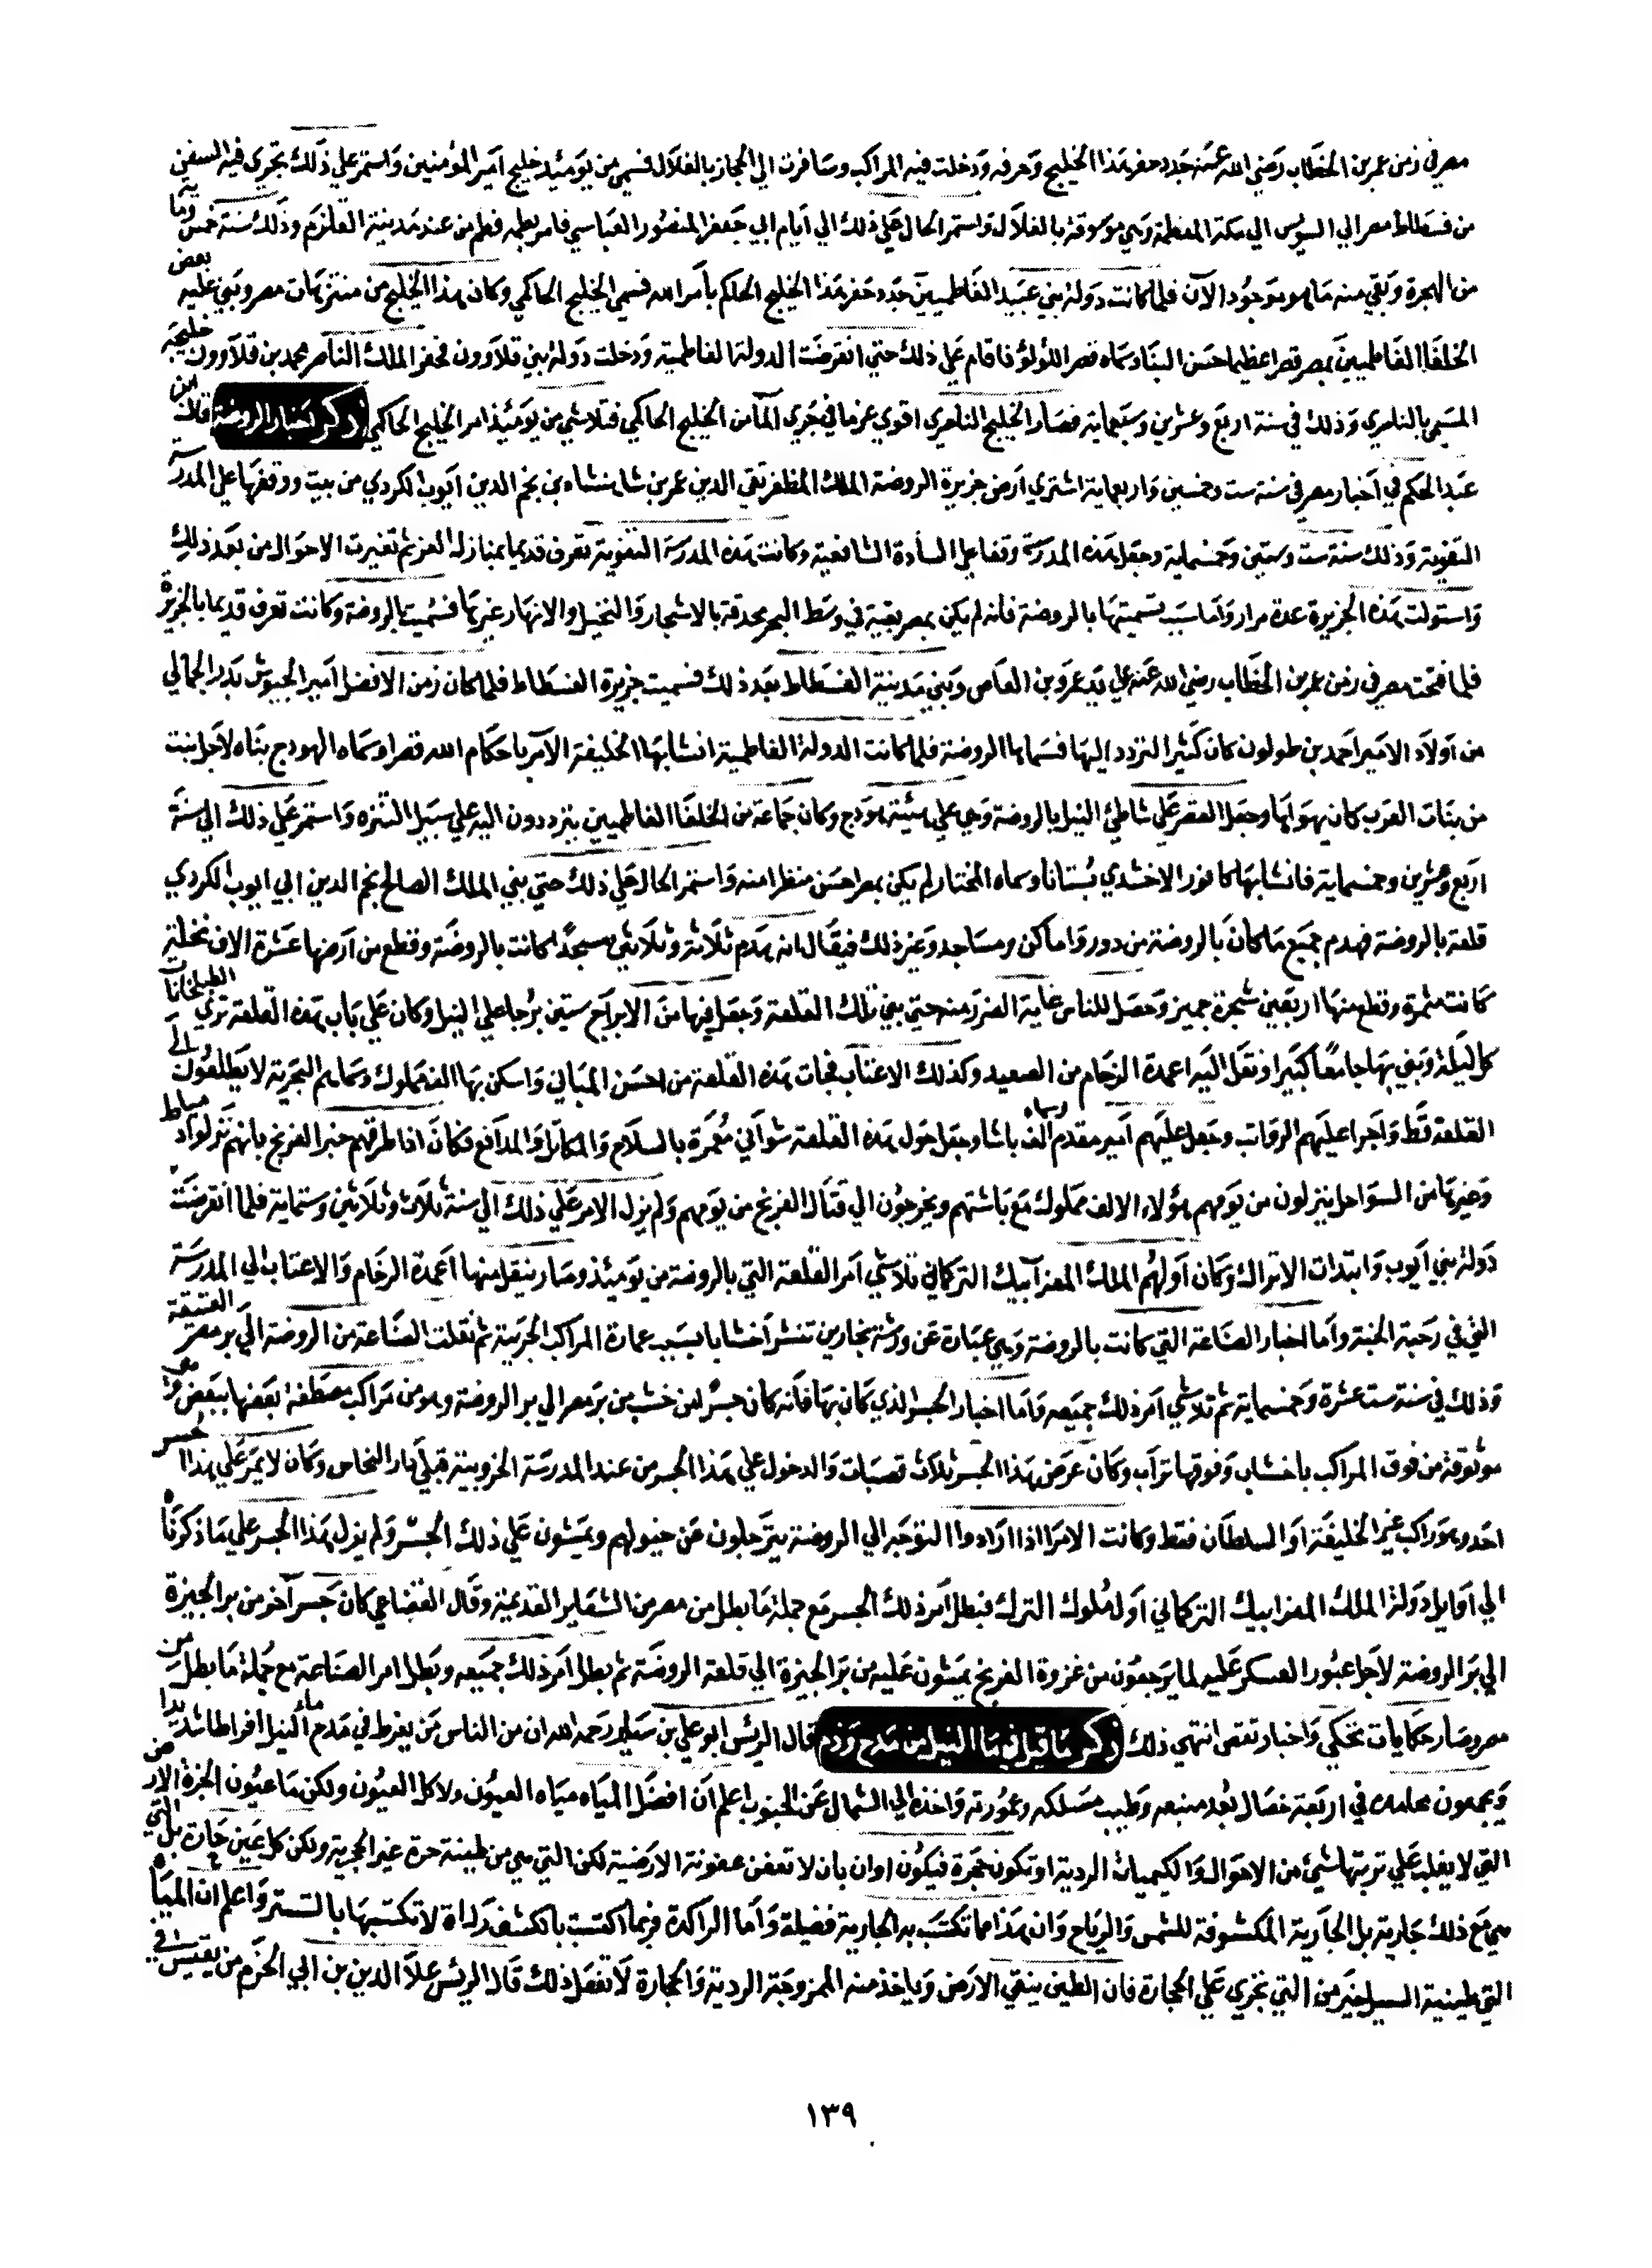 مصر في زمن عمر بن الخطاب رضي الله عنه جدد حفر هذا الخليج وحرفه ودخلت فيه المراكب وسافرت الي الحجاز بالغلال فسمي من يومئذ خليج امير المؤمنين واستمر علي ذلك تجري فيه السفن
من فسطاط مصر الي السويس الي مكة المعظمة وهي موسوقة بالغلال واستمر الحال علي ذلك الي ايام ابي جعفر المنصور العباسي فامر بطمه فطم من عند مدينة القلزم وذلك سنة خمس وماية
من الهجرة وبقي منه ما هو موجود الآن فلما كانت دولة بني عبيد الفاطميين جدد حفر هذا الخليج الحاكم بأمر الله فسمي الخليج الحاكمي وكان هذا الخليج من منتزهات مصر وبني عليه بعض
الخلفا الفاطميين بمصر قصرا عظيما حسن البنا وسماه قصر اللؤلؤ فاقام علي ذلك حتي انقرضت الدولة الفاطمية ودخلت دولة بني قلاوون فحفر الملك الناصر محمد بن قلاوون خليجه
المسمي بالناصري وذلك في سنة اربع وعشرين وسبعماية فصار الخليج الناصري اقوي عزما في جري المآ من الخليج الحاكمي فتلاشي من يومئذ امر الخليج الحاكمي ذكر اخبار الروضة قال ابن
عبد الحكم في اخبار مصر في سنة ست وخمسين واربعماية اشتري ارض جزيرة الروضة الملك المظفر تقي الدين عمر بن شاهنشاه بن نجم الدين ايوب الكردي من بيت ووقفها علي المدرسة
التقوية وذلك سنة ست وستين وخمسماية وجعل هذه المدرسة وقفا علي السادة الشافعية وكانت هذه المدرسة التقوية تعرف قديما بمنازل العز ثم تغيرت الاحوال من بعد ذلك
واستولت هذه الجزيرة عدة مرار واما سبب تسميتها بالروضة فانه لم يكن بمصر بقية في وسط البحر محدقة بالاشجار والنخيل والانهار غيرها فسميت بالروضة وكانت تعرف قديما بالجزيرة
فلما فتحت مصر في زمن عمر بن الخطاب رضي الله عنه علي يد عمرو بن العاص وبني مدينة الفسطاط بعد ذلك فسميت جزيرة الفسطاط فلما كان زمن الافضل امير الجيوش بدر الجمالي
من اولاد الامير احمد بن طولون كان كثير التردد اليها فسماها الروضة فلما كانت الدولة الفاطمية انشا بها الخليفة الآمر باحكام الله قصرا وسماه الهودج بناه لاجل بنت
من بنات العرب كان يهواها وجعل القصر علي شاطئ النيل بالروضة وهي علي هيئة هودج وكان جماعة من الخلفا الفاطميين يترددون اليه علي سبيل التنزه واستمر علي ذلك الي سنة
اربع وعشرين وخمسماية فانشا بها كافور الاخشدي بستانا وسماه المختار لم يكن بمصر احسن منظرا منه واستمر الحال علي ذلك حتي بني الملك الصالح نجم الدين ابي ايوب الكردي
قلعة بالروضة فهدم جميع ما كان بالروضة من دور واماكن ومساجد وغير ذلك فيقال انه هدم ثلاثة وثلاثين مسجدًا كانت بالروضة وقطع من ارضها عشرة الاف نخلة
كانت مثمرة وقطع منها اربعين شجرة جميز وحصل للناس غاية الضرر منه حتي بني تلك القلعة وجعل فيها من الابراج ستين برجا علي النيل وكان علي باب هذه القلعة تري الطبلخانات
كل ليلة وبني بها جامعًا كبيرا ونقل اليه اعمدة الرخام من الصعيد وكذلك الاعتاب فجات هذه القلعة من احسن المباني واسكن بها الف مملوك وسماهم البحرية لا يطلعون الي
القلعة قط واجرا عليهم الرواتب وجعل عليهم امير مقدم الف وسماه باشا وجعل حول هذه القلعة شواني معمرة بالسلاح والمكاحل والمدافع فكان اذا طرقهم خبر الفرنج بانهم نزلوا دمياط
وغيرها من السواحل ينزلون من يومهم هؤلاء الالف مملوك مع باشتهم ويخرجون الي قتال الفرنج من يومهم ولم يزل الامر علي ذلك الي سنة ثلاث وثلاثين وستماية فلما انقرضت
دولة بني ايوب وابتدات الاتراك وكان اولهم الملك المعز آيبك التركماني تلاشي امر القلعة التي بالروضة من يومئذ وصار ينقل منها اعمدة الرخام والاعتاب الي المدرسة
التي في رحبة الحنة واما اخبار الصناعة التي كانت بالروضة وهي عبارة عن ورشة نجارين تنشر اخشابا بسبب عمارة المراكب الحربية ثم نقلت الصناعة من الروضة الي بر مصر العتيقة
وذلك في سنة ست عشرة وخمسماية ثم تلاشي امر ذلك جميعه واما اخبار الجسر الذي كان بها فانه كان جسرًا من خشب من بر مصر الي بر الروضة وهو من مراكب مصطفة بعضها ببعض وهي
موثوقة من فوق المراكب باخشاب وفوقها تراب وكان عرض هذا الجسر ثلاث قصبات والدخول علي هذا الجسر من عند المدرسة الخروبية قبلي دار النحاس وكان لا يمر علي هذا الجسر
احد وهو راكب غير الخليفة او السلطان فقط وكانت الامرا اذا ارادوا التوجه الي الروضة يترجلون عن خيولهم ويمشون علي ذلك الجسر ولم يزل هذا الجسر علي ما ذكرناه
الي اوايل دولة الملك المعز ايبك التركماني اول ملوك الترك فبطل امر ذلك الجسر مع جملة ما بطل من مصر من الشعاير القديمة وقال القضاعي كان جسر آخر من بر الجيزة
الي بر الروضة لاجل عبور العسكر عليه لما يرجعون من غزوة الفرنج يمشون عليه من بر الجيزة الي قلعة الروضة ثم بطل امر ذلك جميعه وبطل امر الصناعة مع جملة ما بطل من
مصر وصار حكايات تحكي واخبار تقص انتهي ذلك ذكر ما قيل في ما النيل من مدح وذم قال الريس ابو علي بن سينا رحمه الله ان من الناس من يفرط في مدح ماء النيل افراطا شديدا
ويجمعون محامده في اربعة خصال بعد منبعه وطيب مسلكه وغمورته واخذه الي الشمال عن الجنوب اعلم ان افضل المياه مياه العيون ولا كل العيون ولكن ما عيون الحرة الارض
التي لا يغلب علي تربتها شيئ من الاحوال والكيميات الردية او تكون حجرة فيكون اوان بان لا تعفن عفونة الارضية لكن التي هي من طينة حرة غير الحجرية ولكن كل عين حارة بل التي
هي مع ذلك جارية بل الجارية المكشوفة للشمس والرياح وان هذا مما تكتسب به الجارية فضيلة واما الراكدة فربما اكتست بالكشف رداة لا تكتسبها بالتستر واعلم ان المياه
التي طينية المسيل خير من التي تجري علي الحجارة فان الطين ينقي الارض وياخذ منه الممزوجة الردية والحجارة لا تفعل ذلك قال الريس علا الدين بن ابي الحزم من يقيس
١٣٩